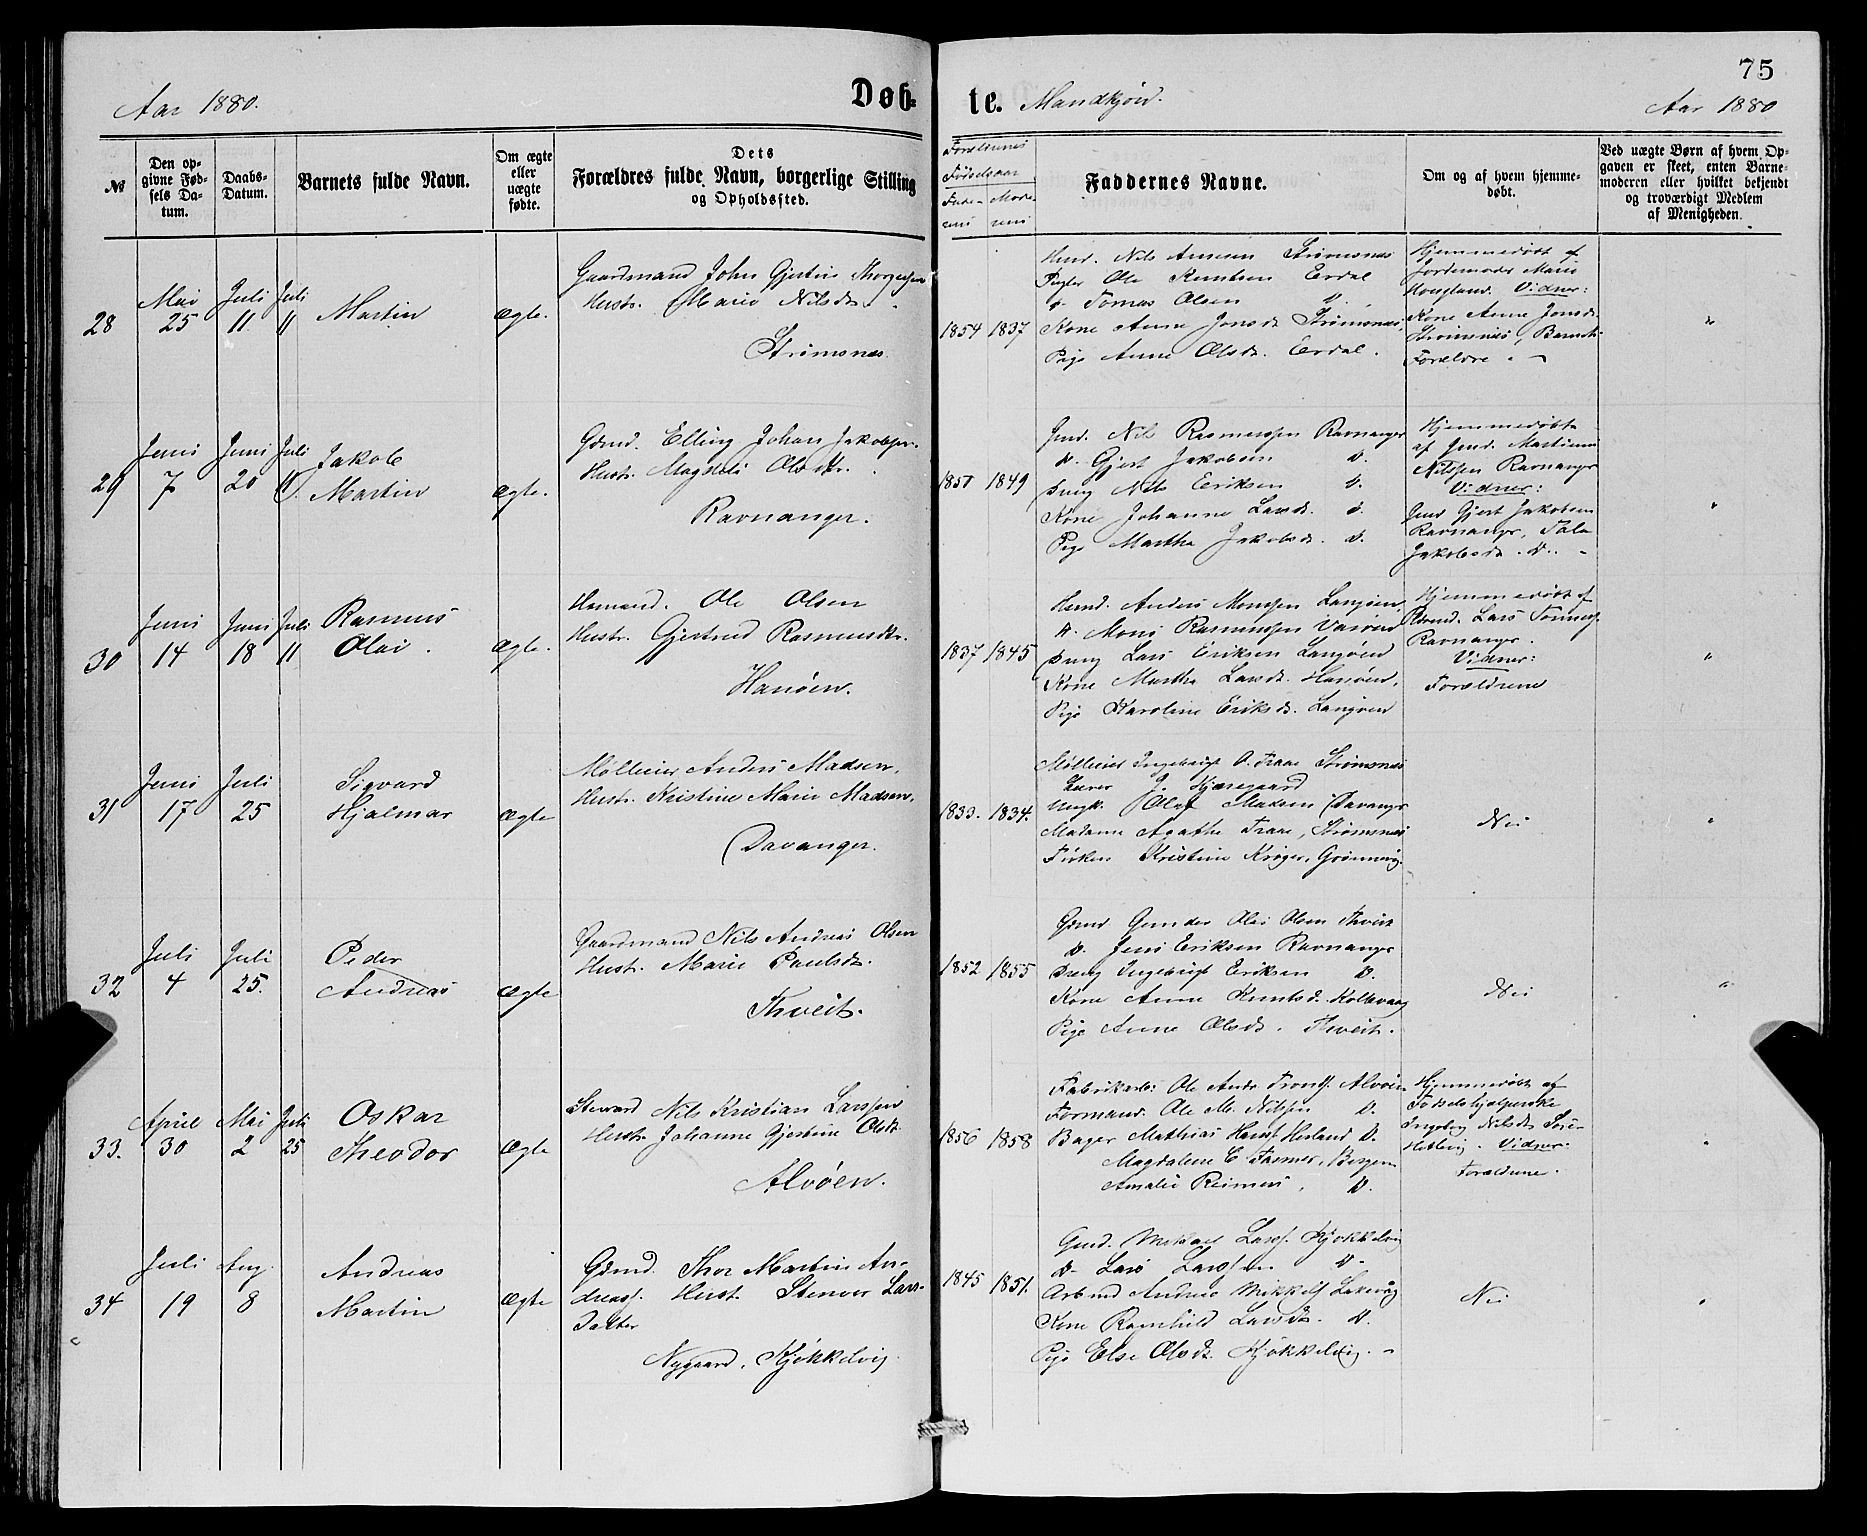 75
Aar 1880.
Døb-
te. Mandkjøn.
Aar 1880
№
Den op-
givne Fød-
sels Da-
tum.
Daabs-
Datum.
Barnets fulde Navn.
Om ægte
eller
uægte
fødte.
Dets
Forældres fulde Navn, borgerlige Stilling
og Opholdssted.
Forældrenes
Fødselsaar
Fade- Mode-
rens rens
Faddernes Navne.
Om og af hvem hjemme-
døbt.
Ved uægte Børn af hvem Op-
gaven er skeet, enten Barne-
moderen eller hvilket bekjendt
og troværdigt Medlem
af Menigheden.
28
Mai
25
Juli
11
Juli
11
Martin
Ægte.
Gaardmand John Gjertin
Hustr. Marie Nilsdr.
Strømsnes
1854 1837
Nils Strømsnes
Ole Knutsen Eerdal
D. Tomas Olsen D.
Kone Anne Jonsd. Strømsnes,
Pige Anne Olsdr. Eerdal.
Hjemmedøbt af
Jordemoder Marie
Hougland. Vidner:
Kone Anne Jonsd.
Strømsnes, Barnets
Forældre.
29
Juni
7
Juni
20
Juli
11.
Jakob
Martin
Ægte.
Gdmd. Elling Johan Jakobsen.
Hustr. Magdeli Olsdtr.
Ravnanger.
1851 1849
Gmd. Nils Rasmussen Ravnanger
D. Gjert Jakobsen D.
Dreng Nils Eriksen D.
Kone Johanne Larsd. D.
Pige Martha Jakobsd. D.
Hjemmedøbt
af Gmd. Martinus
Nilssen Ravnanger
Vidner:
Gmd Gjert Jakobsen
Ravnanger,
Jakobsd. D.
30
Juni
14
Juni
18
Juli
11
Rasmus
Olai.
Ægte.
Husmand. Ole Olsen
Hustr. Gjertrud Rasmusdtr.
Hanøen.
1837 1845
Husmd. Anders Monssen Langøen,
D. Mons Rasmussen
Dreng Lars Eriksen Langøen
Kone Martha Larsd. Hanøen,
Pige Karoline Eriksd. Langøen
Hjemmedøbt af
Lars
Ravnanger.
Vidner:
Forældrene
31
Juni
17
Juli
25
Sigvard
Hjalmar
Ægte
Møllerier Anders Madsen,
Hustr. Kristine Marie Madsen,
Davanger.
1833. 1834.
Møllerier Ingebrigt O. Traae Strømsnes
Lærer J. Kjæregaard
Ungk. Olaf Madsen Davanger
Madame Agathe Traae, Strømsnes
Frøken Kristine Krøger,
Nei
32
Juli
4
Juli
25.
Peder
Andreas
Ægte
Gaardmand Nils Andreas Olsen
Hustr. Marie Paulsdr.
Thveit.
1852 1855
Gdmd Gunder Olai Olsen Thveit
D. Jens Eriksen Ravnanger
Dreng Ingebrigt Eriksen D.
Kone Anne Knutsd. Kollevaag
Pige Anne Olsdr. Thveit.
Nei
33.
April
30
Mai
2
Juli
25
Oskar
Theodor
Ægte
Steward Nils Kristian Larssen
Hustr. Johanne Gjertine Olsdr.
Alvøen.
1856 1858
Fabrikarb: Ole Ands Alvøen
Formand. Ole M. Nilsen D.
Bager Mathias D.
Magdalene C. Bergen
Amalie Reimers, D.
Hjemmedøbt af
Fødselshjælperske
Ingeborg Nilsdr.
Vidner:
Forældrene.
34
Juli
19
Aug.
8
Andreas
Martin
Ægte
Gdmd. Thor Martin An-
dreass. Hust. Stenvor Lars-
datter
Nygaard, Kjøkkelvig
1845 1851.
Gmd. Mikael Larss. Kjøkkelvig
D. Lars Larssen D.
Arbmd Andreas Mikkels. Laksevåg
Kone Ragnhild Larsdr. D.
Pige Else Olsdr. Kjøkkelvig.
Nei